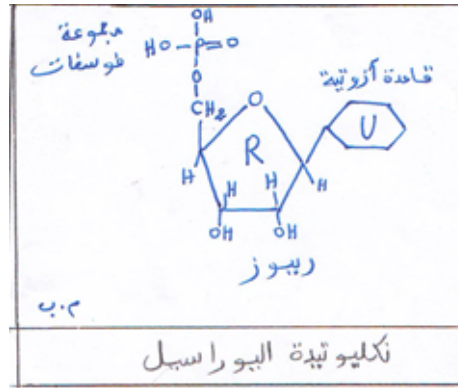 مجموعة
فوسفات
OH
HO-P=O
O
CH2
O
قاعدة أزوتية
U
R
H
H
H
H
OH
OH
ريبوز
م.ب
نكليوتيدة اليوراسيل